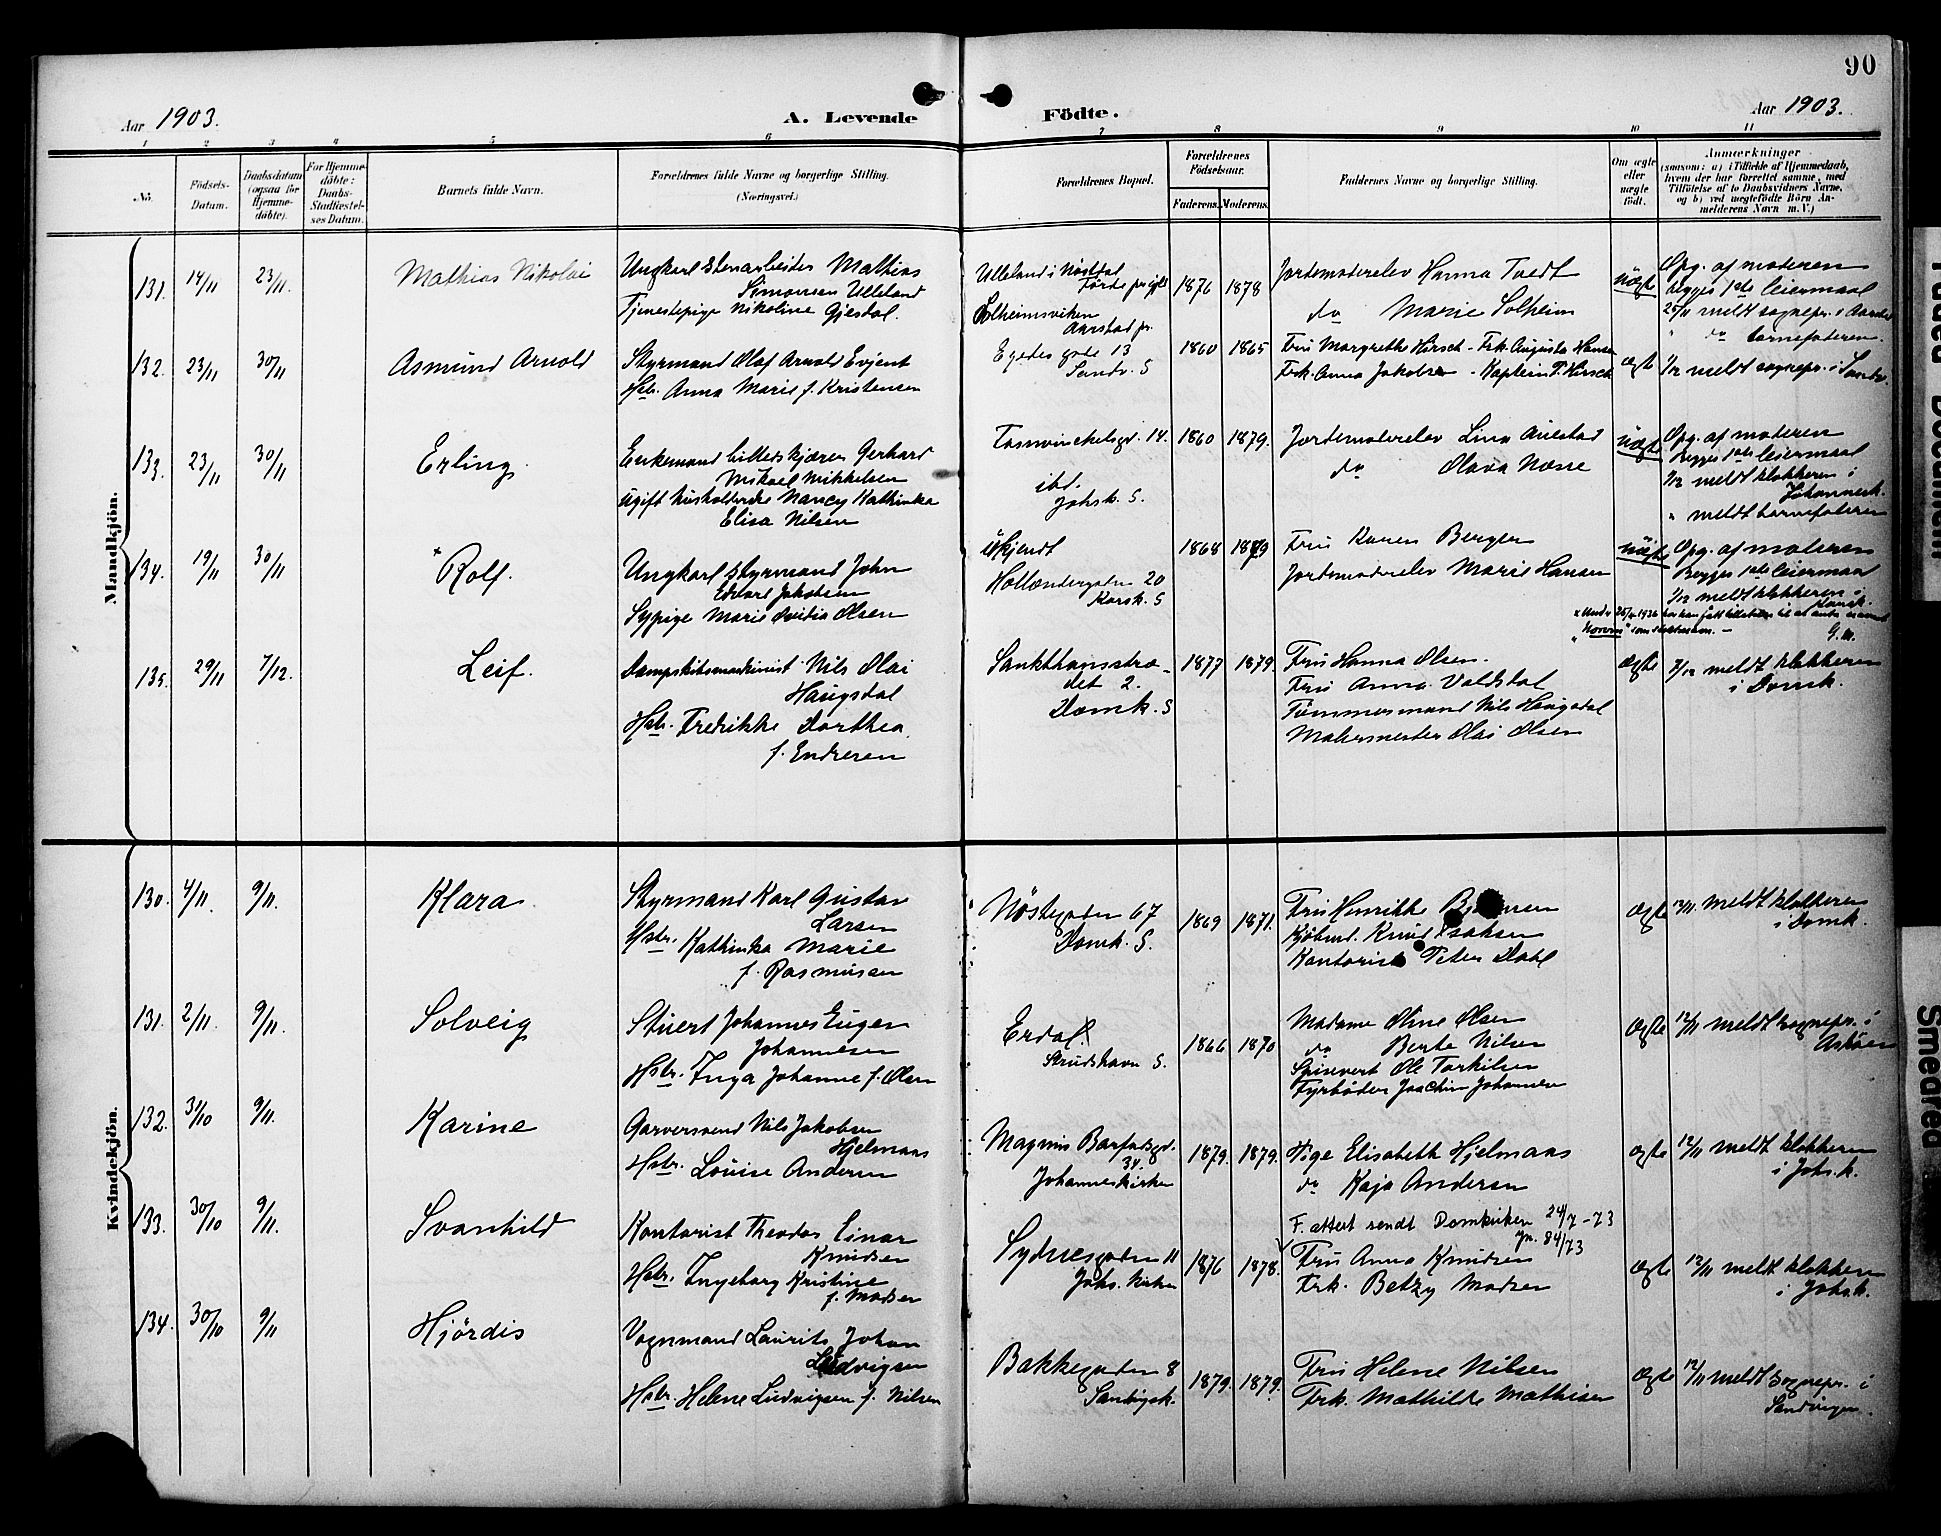 90
Aar 1903.
A. Levende Födte.
Aar 1903.
1 2 3 4 5 6 7 8 9 10 11
No.
Födsels-
Datum.
Daabsdatum
(ogsaa for
Hjemme-
döbte).
For Hjemme-
döbte:
Daabs-
Stadfæstel-
ses Datum.
Barnets fulde Navn.
Forældrenes fulde Navne og borgerlige Stilling.
(Næringsvei.)
Forældrenes Bopæl.
Forældrenes
Födselsaar.
Faderens. Moderens.
Faddernes Navne og borgerlige Stilling.
Om ægte
eller
uægte
födt.
Anmærkninger
(saasom: a) i Tilfælde af Hjemmedaab,
hvem der har forrettet samme, med
Tilföielse af to Daabsvidners Navne,
og b) ved uægtefödte Börn An-
melderens Navn m. V.)
Mandkjön.
131. 14/11 23/11. Mathias Nikolai
Ungkarl Stenarbeider Mathias
Simonsen Ulleland
Tjenestepige Nikoline Gjesdal.
Ulleland i Nöstdal
Förde prgjld
Solheimsviken
Aarstad pr.
1876 1878
Jordemoderelev Hanna Tvedt
do Marie Solheim
uægte
Opg. af moderen
begges 1ste leiermaal
25/11 meldt sognepr. i Aarstad
" do barnefaderen.
132. 23/11 30/11 Asmund Arnold
Styrmand Olaf Arnold Evjent
Hstr. Anna Marie f. Kristensen
Egedes gade 13
Sandv. S
1860 1865
Fru Margrethe Hirsch - Frk. Augusta Hansen
Frk. Anna Jakobsen - Kaptein P. Hirsch
ægte
1/12 meldt sognepr. i Sandv.
133. 23/11 30/11 Erling.
Enkemand billedskjærer Gerhard
Mikael Mikkelsen
ugift husholderske Nancy Kathinka
Elisa Nilsen
14.
ibd.
Johsk. S.
1860 1879.
Jordemoderelev Lina Auestad
do Olava Næsse
uægte
Opg. af moderen
Begges 1ste leiermaal
1/12 meldt klokkeren i
Johannesk.
" meldt barnefaderen
134. 19/11 30/11 * Rolf.
Ungkarl Styrmand John
Edvard Jakobsen
Sypige Marie Ovidia Olsen
Ukjendt
Hollændergaden 20
Korsk. S
1868 1879
Fru Karen Bergen
Jordemoderelev Marie Hansen
uægte
Opg. af moderen
Begges 1ste leiermaal
1/12 meldt klokkeren i
Korsk.
som slektsnavn. —
G.M.
135. 29/11 7/12. Leif.
Dampskibsmaskinist Nils Olai
Haugsdal
Hstr. Fredrikke Dorthea
f. Endresen
Sankthansstræ-
det 2.
Domk. S
1877 1879.
Fru Hanna Olsen.
Fru Anna Valdstal
Tömmermand Nils Haugsdal
Malermester Olai Olsen
ægte
8/12 meldt klokkeren
i Domk.
Kvindekjön.
130. 4/11. 9/11. Klara
Styrmand Karl Gustav
Larsen
Hstr. Kathinka Marie
f. Rasmussen
Nöstegaden 67
Domk. S.
1869 1871.
Fru Henrikke
Kjöbmd. Knud Isaksen
Kontorist Peter Dahl
ægte
12/11. meldt klokkeren
i Domk.
131. 2/11. 9/11. Solveig
Stuert Johannes Eugen
Johannesen
Hstr. Inga Johanne f. Olsen
Erdal
Strudshavn S.
1866 1870
Madame Oline Olsen
do Berte Nilsen
Spisevert Ole Torkilsen
Fyrböder Joachim Johannesen
ægte
12/11 meldt sognepr. i
Asköen
132. 31/10 9/11. Karine
Garversvend Nils Jakobsen
Hjelmaas
Hstr. Louise Andersen
Magnus Barfodsgd.
34.
Johanneskirken
1879. 1879.
Pige Elisabeth Hjelmaas
do Kaja Andersen
ægte
12/11 meldt klokkeren
i Johsk.
133. 30/10 9/11. Svanhild
Kontorist Theodor Einar
Knudsen
Hstr. Ingeborg Kristine
f. Madsen
Sydnesgaden 11
Johs. kirken
1876 1878.
F. attest sendt Domkirken 24/7-73
Jn. 84/73
Fru Anna Knudsen
Frk. Betzy Madsen
ægte
12/11 meldt klokkeren
i Johsk.
134. 30/10 9/11 Hjördis
Vognmand Laurits Johan
Ludvigsen
Hstr. Helene Ludvigsen f. Nilsen
Bakkegaden 8
Sandvigsk.
1879. 1879.
Fru Helene Nilsen
Frk. Mathilde Mathisen
ægte
12/11 meldt sognepr. i
Sandvigen.
Smeared